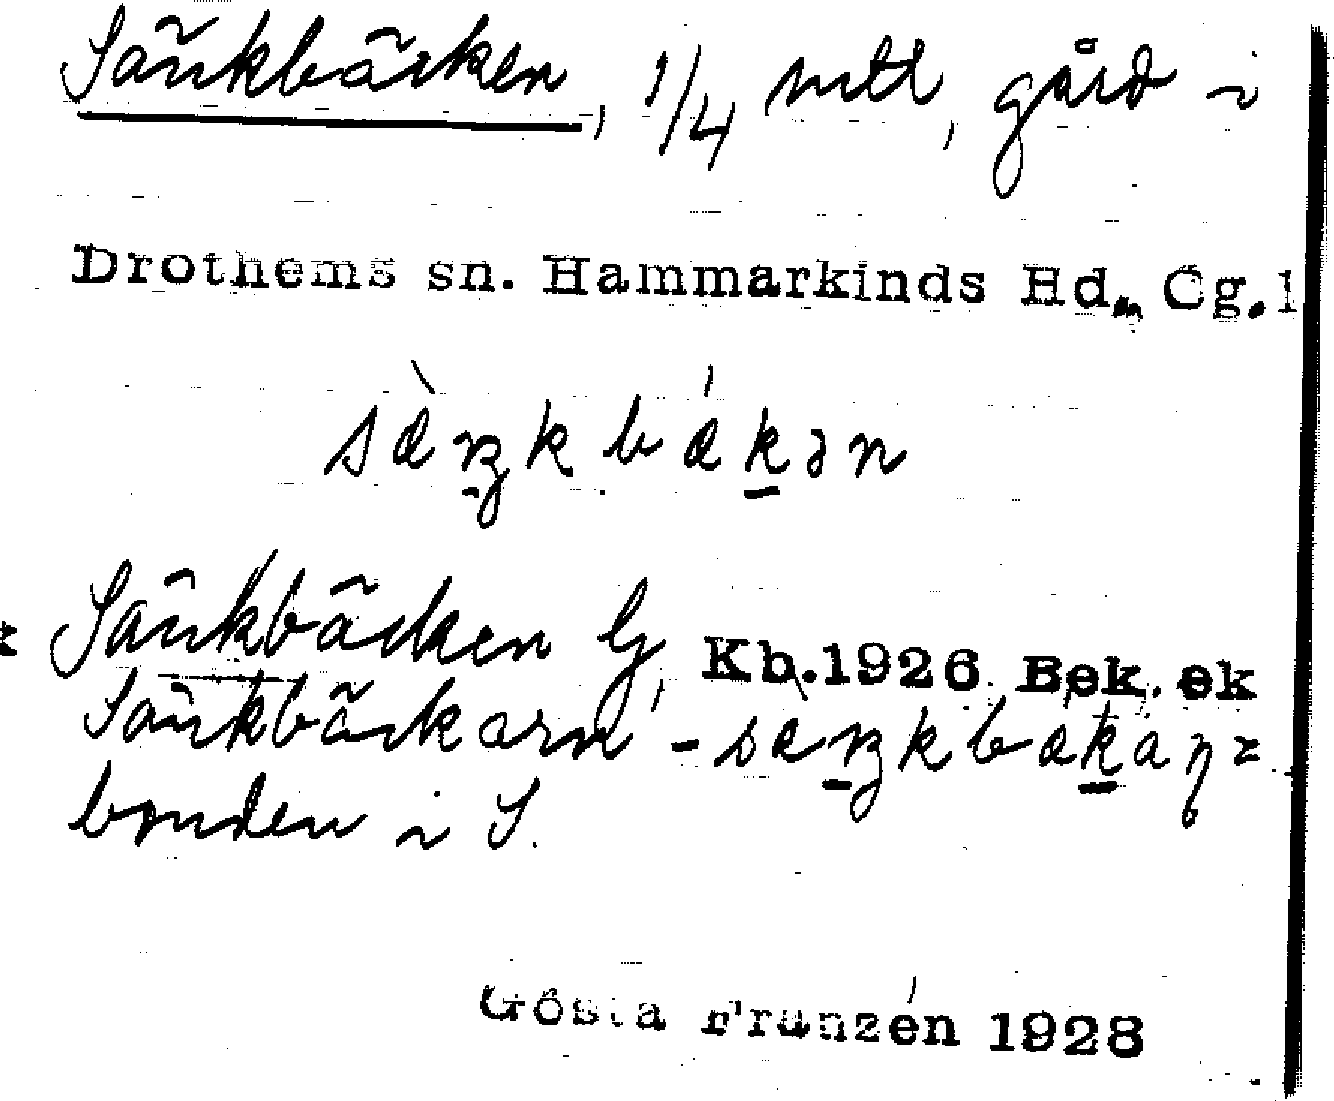 Sänkbäcken, 1/4 mtl, gård i
Drothems sn. Hammarkinds Hd. Ög.l
sæ̀ŋkbækən
Sänkbäcken G, Kb.1926 Bek. ek
Sänkbäckarn - sæ̀ŋkbækaɳ =
bonden i S.
Gösta Franzén 1928